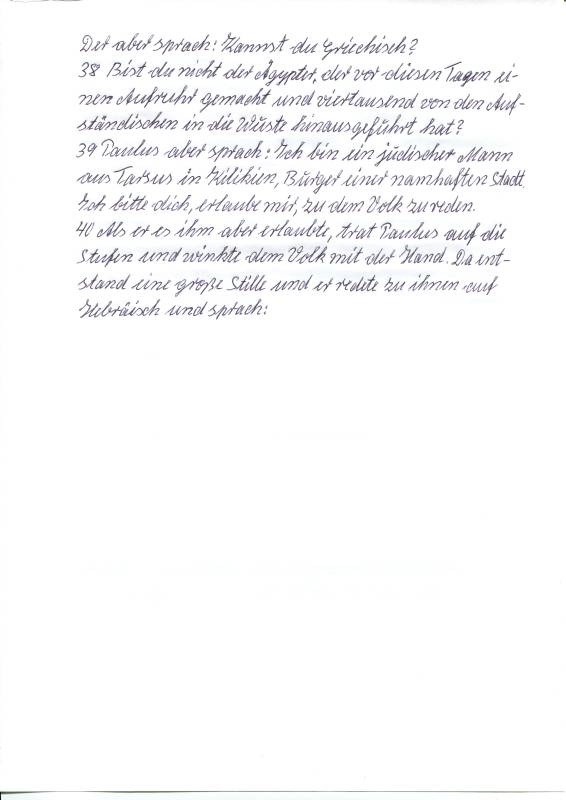 Der aber sprach: Kannst du Griechisch?
38 Bist du nicht der Ägypter, der vor diesen Tagen ei-
nen Aufruhr gemacht und viertausend von den Auf-
ständischen in die Wüste hinausgeführt hat?
39 Paulus aber sprach: Ich bin ein jüdischer Mann
aus Tarsus in Zilikien, Bürger einer namhaften Stadt.
Ich bitte dich, erlaube mir, zu dem Volk zu reden.
40 Als er es ihm aber erlaubte, trat Paulus auf die
Stufen und winkte dem Volk mit der Hand. Da ent-
stand eine große Stille und er redete zu ihnen auf
Hebräisch und sprach: